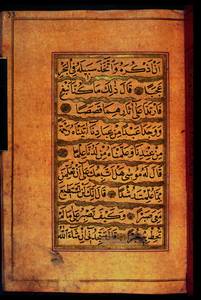 ان اذكره واتخذ سبيله في البحر
عجبا قال ذلك ما كنا نبغ
فارتدا على آثارهما قصصا
فوجدا عبدا من عبادنا آتيناه رحمة
من عندنا وعلمناه من لدنا علما
قال له موسى هل اتبعك على ان تعلمن
مما علمت رشدا قال انك لن تستطيع
معي صبرا وكيف تصبر على ما لم
تحط به خبرا قال ستجدني ان شاء الله